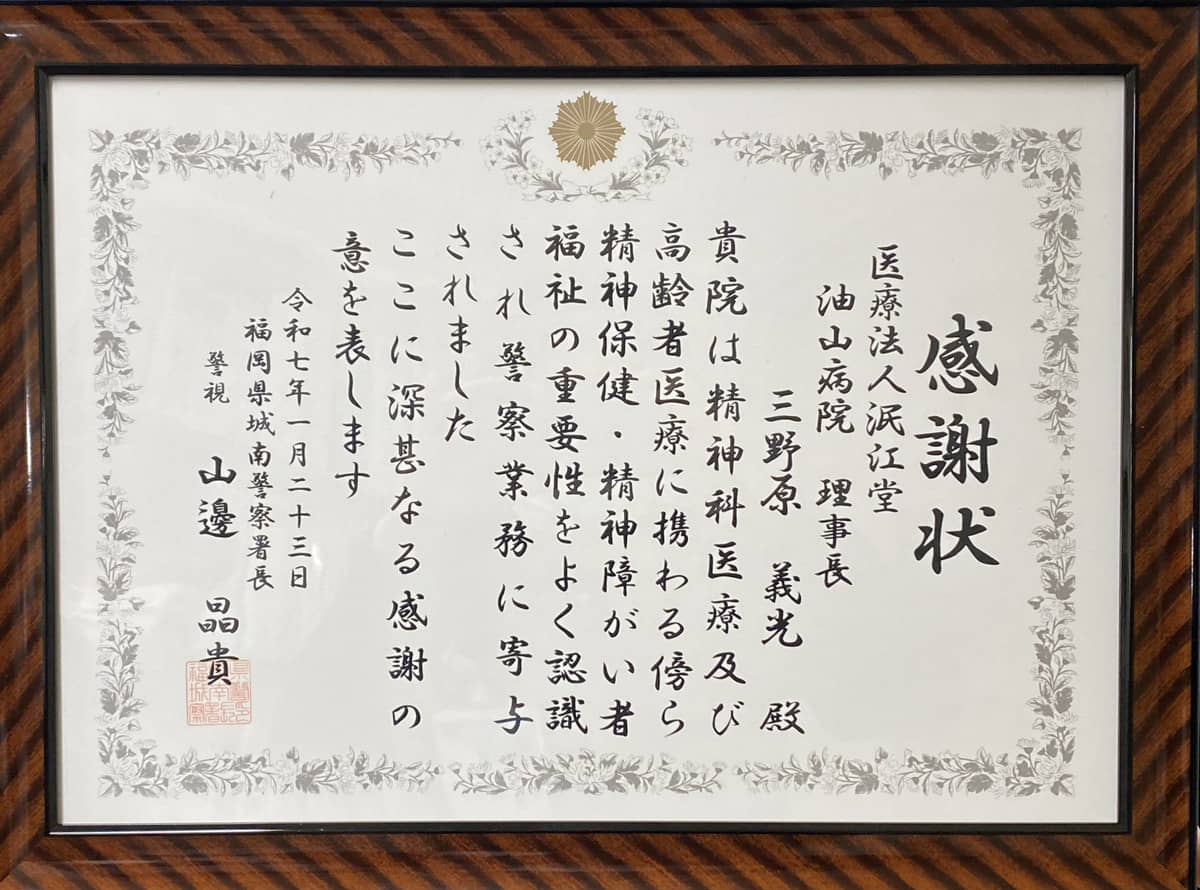 感謝状
医療法人泯江堂
油山病院 理事長
三野原 義光 殿
貴院は精神科医療及び
高齢者医療に携わる傍ら
精神保健・精神障がい者
福祉の重要性をよく認識
され警察業務に寄与
されました
ここに深甚なる感謝の
意を表します
令和七年一月二十三日
福岡県城南警察署長
警視 山邊 晶貴